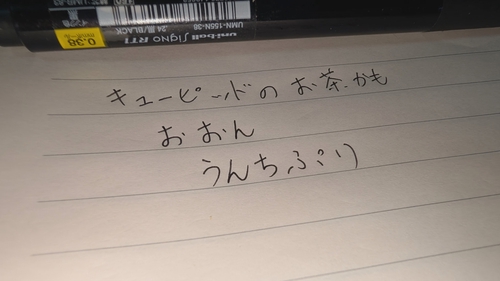 uni-ball Signo RT1
UMN-155N-38
24 黒/BLACK
0.38
キューピッドのお茶かも
おおん
うんちぶり